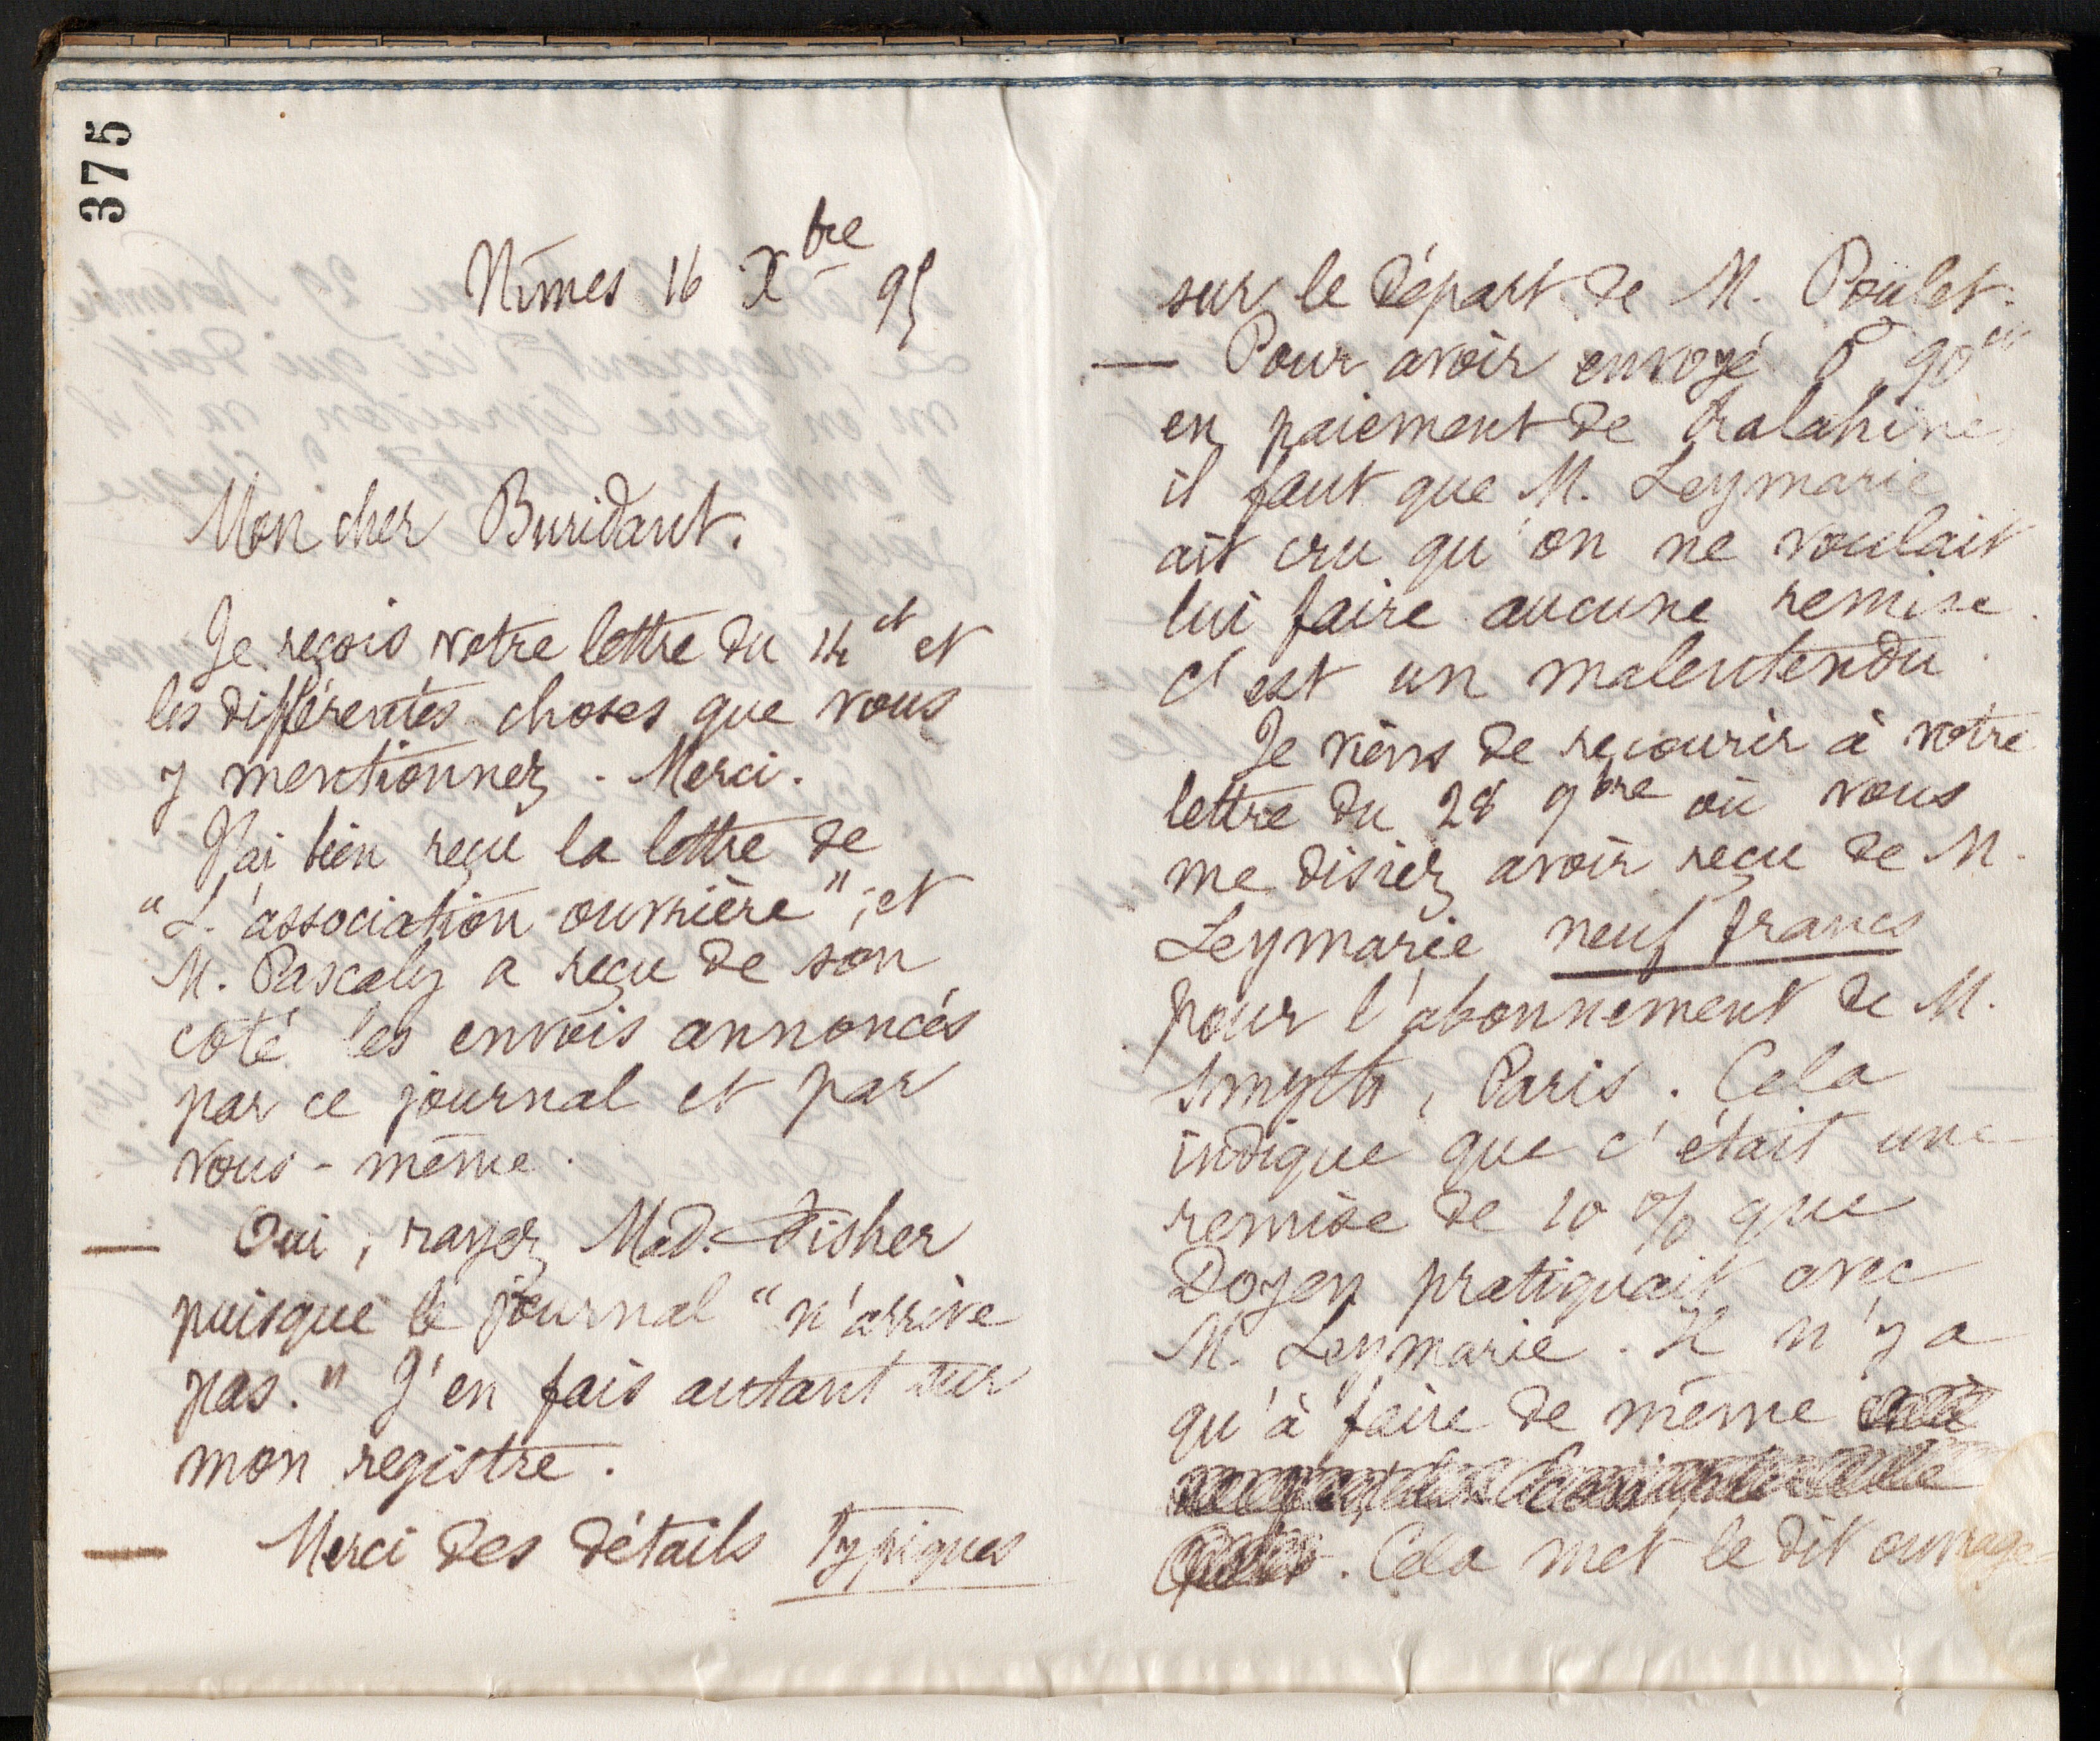 375
Nîmes 16 Xbre 95
Mon cher Buridant.
Je reçois votre lettre du 14 ct et
les différentes choses que vous
y mentionnez. Merci.
J'ai bien reçu la lettre de
"L'association ouvrière"; et
M. Pascaly a reçu de son
côté les envois annoncés
par ce journal et par
vous-même.
— Oui, rayez Mad. Fisher
puisque le journal "n'arrive
pas." J'en fais autant sur
mon registre.
— Merci des détails typiques
sur le départ de M. Poulet.
— Pour avoir envoyé 0 90
en paiement de Ralahine
il faut que M. Leymarie
ait cru qu'on ne voulait
lui faire aucune remise.
C'est un malentendu.
Je viens de recourir à votre
lettre du 28 9bre où vous
me disiez avoir reçu de M.
Leymarie neuf francs
pour l'abonnement de M.
Smyth, Paris. Cela
indique que c'était une
remise de 10 % que
Doyen pratiquait avec
M. Leymarie. Il n'y a
qu'à faire de même
. Cela met le dit ouvrage